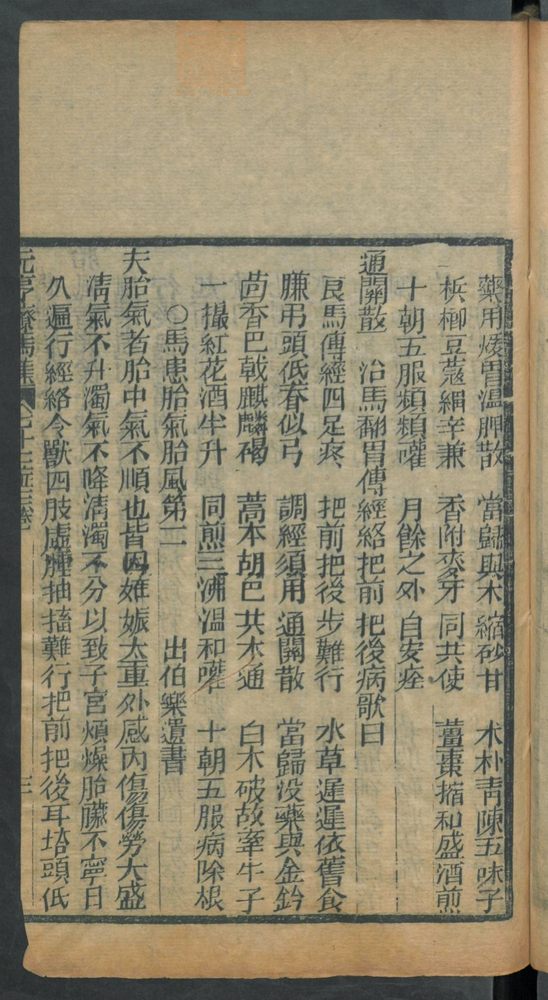 藥用煖胃溫脾散　當歸與木縮砂甘　朮朴青陳五味子
梹榔豆蔻細辛兼　香附麥芽同共使　薑棗搐和盛酒煎
十朝五服頻頻嚾　月餘之外自安痊
通關散　治馬翻胃傳經絡把前把後病歌曰
良馬傳經四足疼　把前把後步難行　水草遲遲依舊食
賺弔頭低脊似弓　調經須用通關散　當歸没藥與金鈴
茴香巴戟麒麟碣　藁本胡巴共木通　白朮破故牽牛子
一撮紅花酒半升　同煎三沸溫和嚾　十朝五服病除根
○馬患胎氣胎風第二　出伯樂遺書
夫胎氣者胎中氣不順也皆因姙娠太重外感內傷傷勞大盛
清氣不升濁氣不降清濁不分以致子宮煩燥胎臟不寧日
久遍行經絡令獸四肢虛腫抽搐難行把前把後耳搭頭低
元亨療馬集　七十二症三卷　三